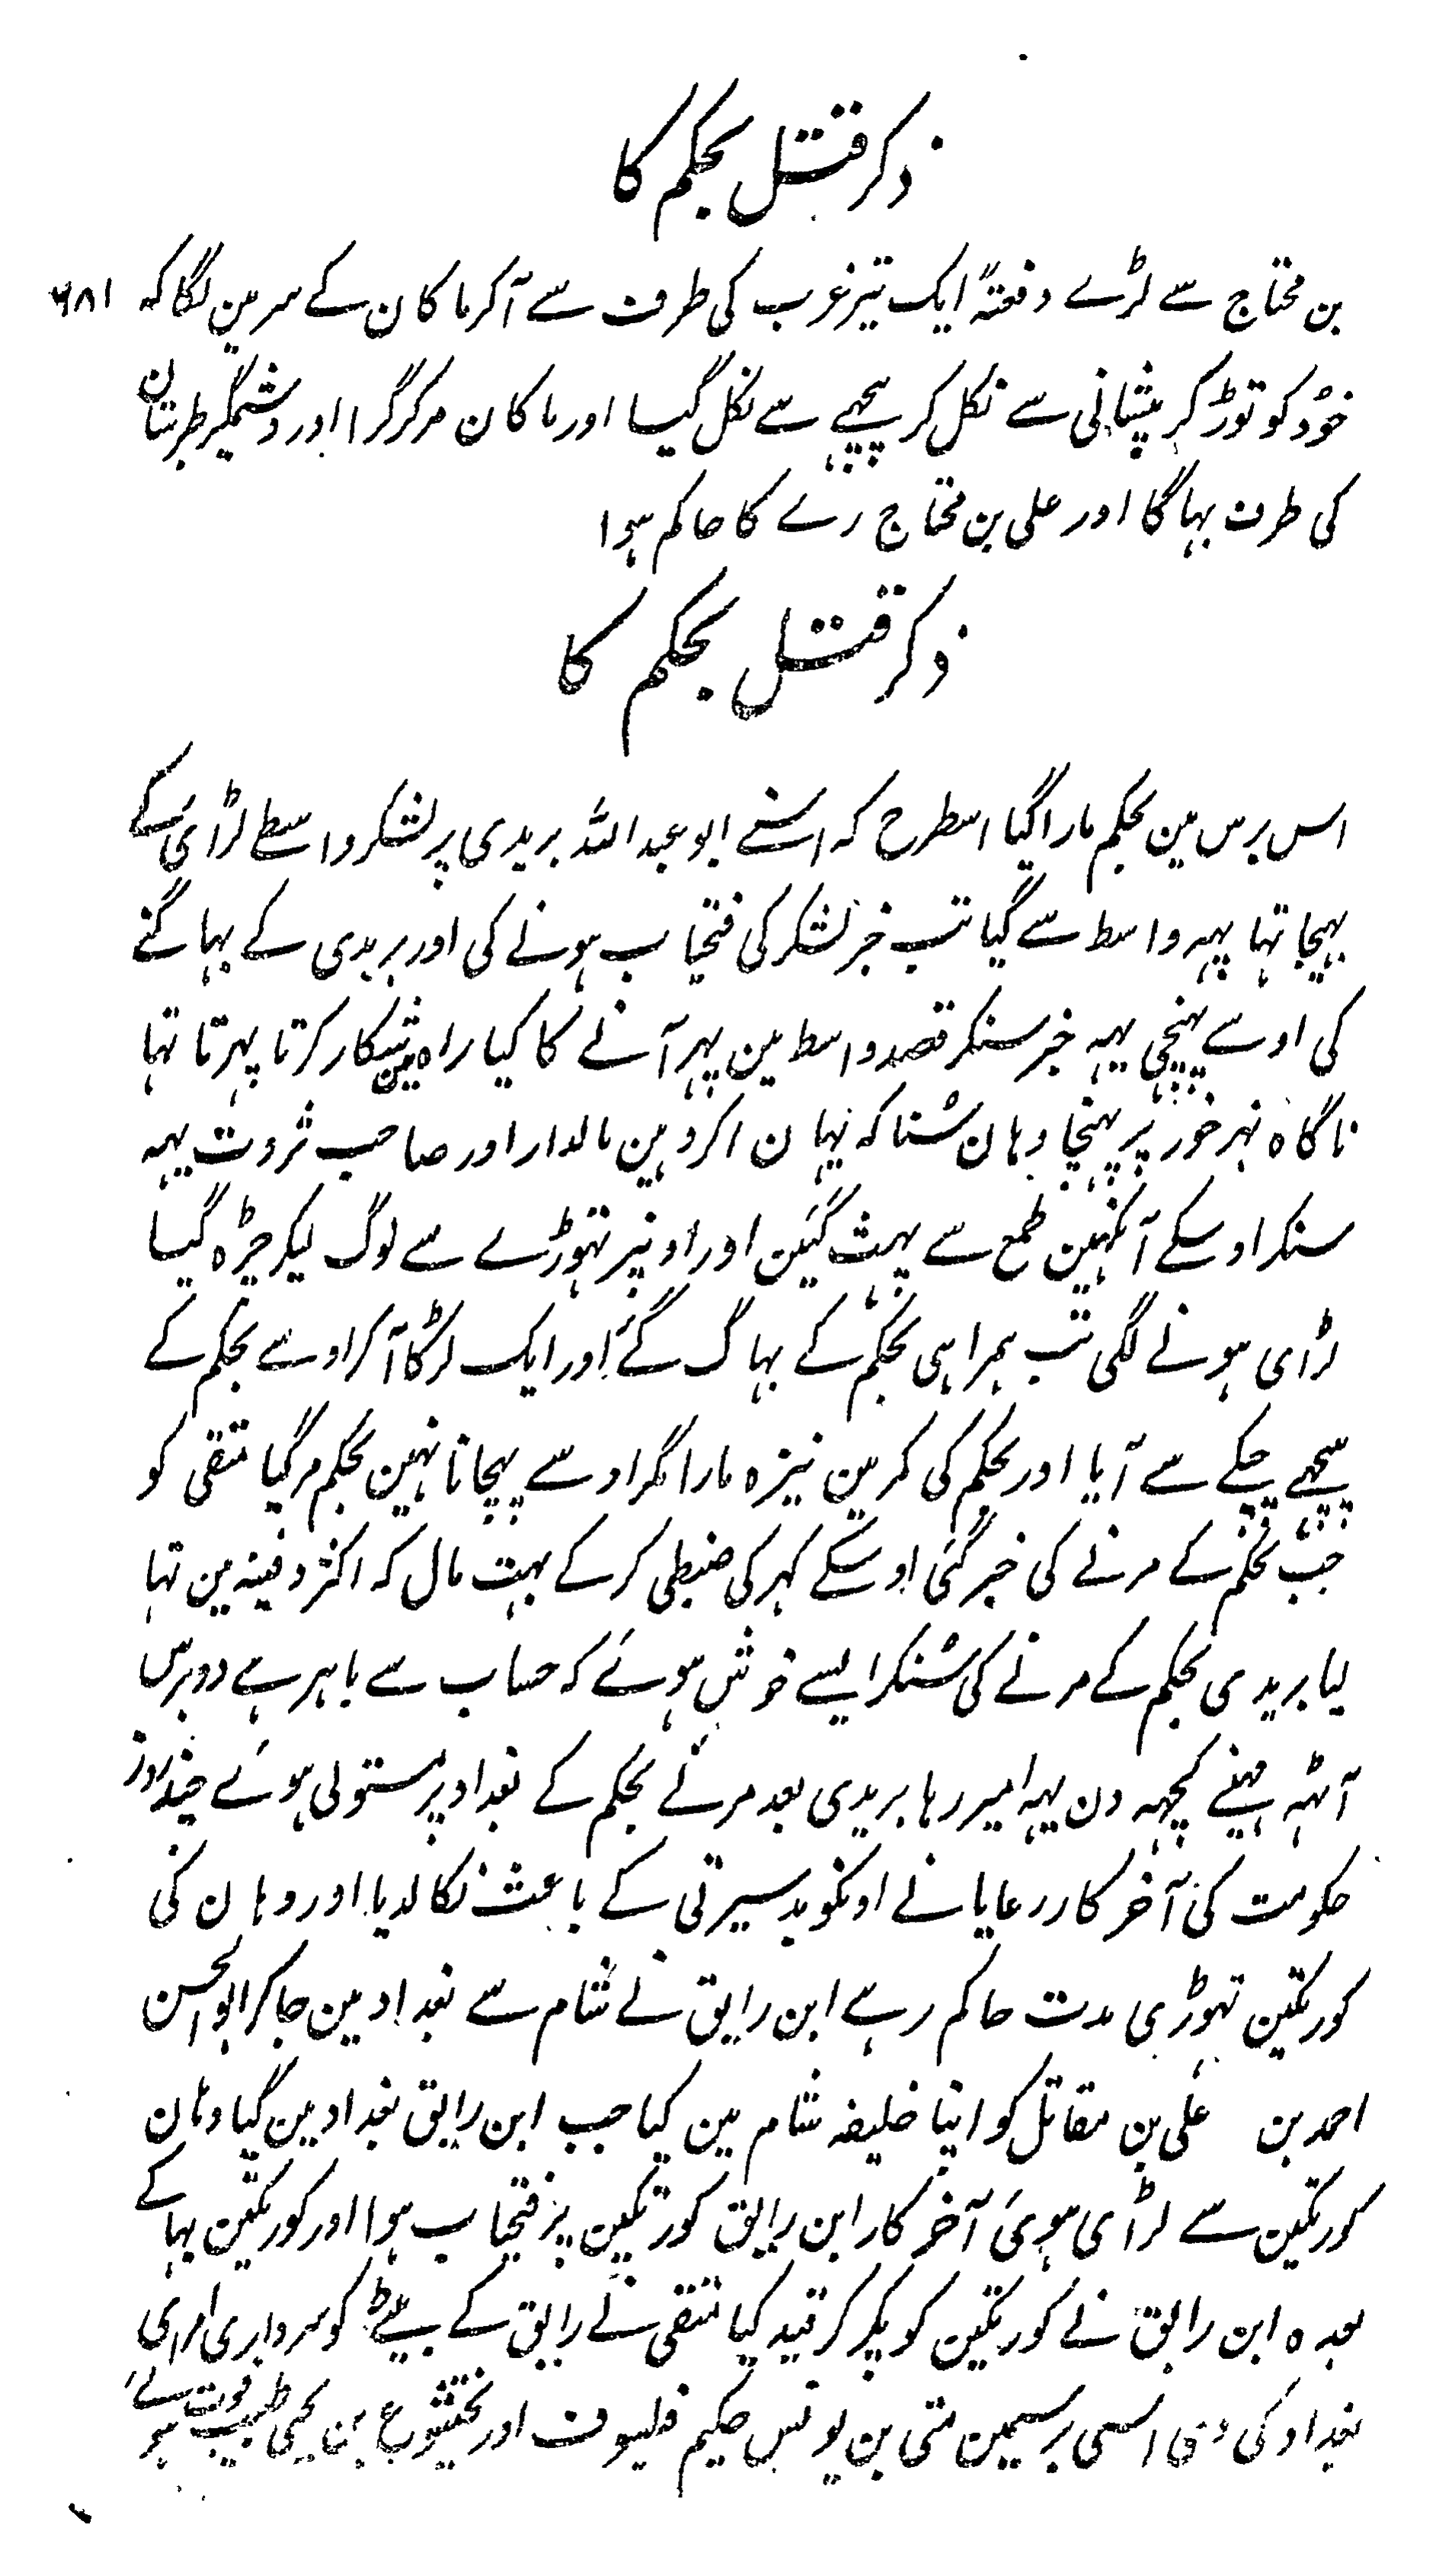 ذکر قتل بجکم کا
بن محتاج سے لڑے دفعتہً ایک تیر غرب کی طرف سے آکر ماکان کے سر مین لگا کہ ۶۸۱
خود کو توڑ کر پیشانی سے نکل کر پیچھے سے نکل گیا اور ماکان مر کر گرا اور وشمگیر طبرستان
کی طرف بہاگا اور علی بن محتاج رے کا حاکم ہوا
ذکر قتل بجکم کا
اس برس مین بجکم مارا گیا اسطرح کہ اسنے ابو عبد اللہ بریدی پر لشکر واسطے لڑائی کے
بہیجا تہا پہر واسط سے گیا تب خبر لشکر کی فتحیاب ہونے کی اور بریدی کے بہاگنے
کی اوسے پہنچی یہہ خبر سنکر قصد واسط مین پہر آنے کا کیا راہ مین شکار کرتا پہرتا تہا
ناگاہ نہر خور پر پہنچا وہان سنا کہ یہان اکرد ہین مالدار اور صاحب ثروت یہہ
سنکر اوسکے آنکہین طمع سے پہٹ گئین اور اونپر تہوڑے سے لوگ لیکر چڑہ گیا
لڑائی ہونے لگی تب ہمراہی بجکم کے بہاگ گئے اور ایک لڑکا آکر اوسے بجکم کے
پیچہے چپکے سے آیا اور بجکم کی کمر مین نیزہ مارا مگر اوسے پہچانا نہین بجکم مر گیا متقی کو
جب بجکم کے مرنے کی خبر گئی اوسکے گہر کی ضبطی کر کے بہت مال کہ اکثر دفینہ مین تہا
لیا بریدی بجکم کے مرنے کی سنکر ایسے خوش ہوئے کہ حساب سے باہر ہے دو برس
آٹہہ مہینے کچہہ دن یہہ امیر رہا بریدی بعد مرنے بجکم کے بغداد پر مستولی ہوئے چند روز
حکومت کی آخر کار رعایا نے اونکو بد سیرتی کے باعث نکالدیا اور وہان کی
کورتکین تہوڑی مدت حاکم رہے ابن رایق نے شام سے بغداد مین جا کر ابو الحسن
احمد بن علی بن مقاتل کو اپنا خلیفہ شام مین کیا جب ابن رایق بغداد مین گیا وہان
کورتکین سے لڑائی ہوئی آخر کار ابن رایق کورتکین پر فتحیاب ہوا اور کورتکین بہاگے
بعدہ ابن رایق نے کورتکین کو پکر کر قید کیا متقی نے رایق کے بیٹے کو سرداری امرای
بغداد کی دی اسی برسمین متی بن یونس حکیم فلیسوف اور بختیشوع بن یحیی طبیب فوت ہوئے